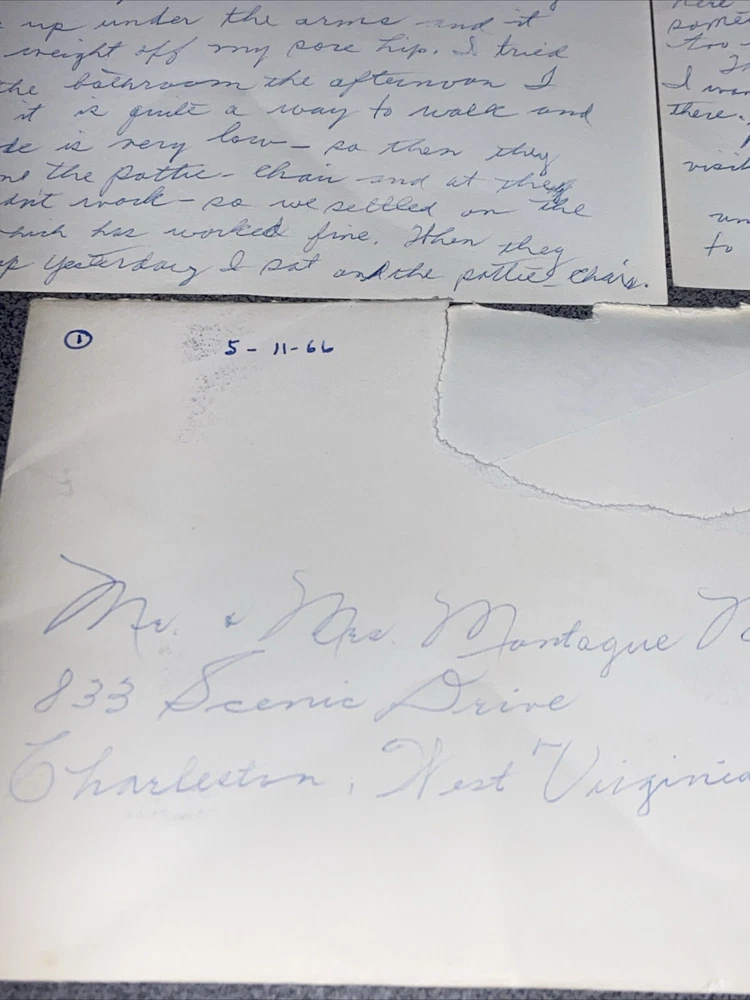 up under the arms and it
weight off my sore hip. I tried
the bathroom the afternoon I
it is quite a way to walk and
de is very low - so then they
me the pottie - chair and at they
dn't work - so we settled on the
which has worked fine. When they
up yesterday I sat on the pottie - chair.
here
some
too -
I wan
there.
visit
un
to
1
5-11-66
Mr. & Mrs. Montague
833 Scenic Drive
Charleston, West Virginia